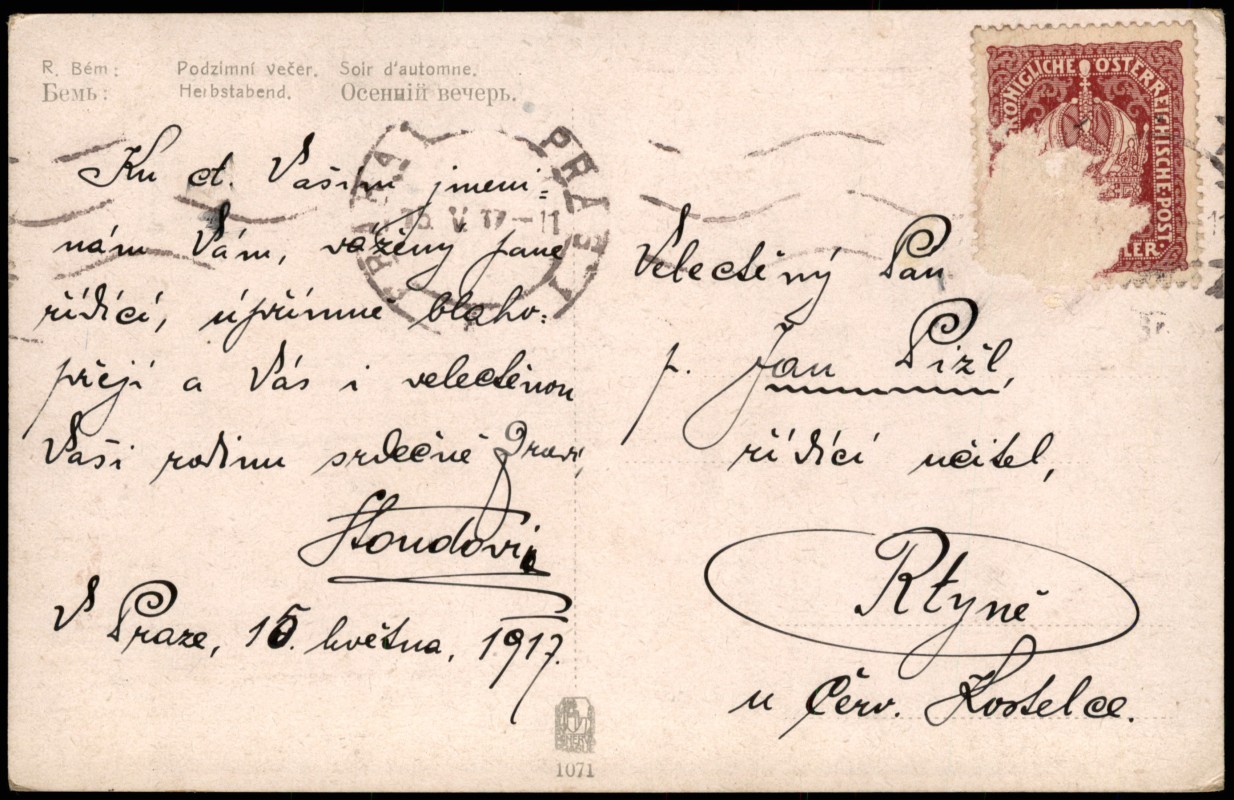 R. Bém: Podzimní večer. Soir d'automne.
Бемъ: Herbstabend. Осенній вечеръ.
Ku ct. Vašim jmeni-
nám Vám, vážený pane
řídící, úpřímně blaho-
přejí a Vás i velectěnou
Vaši rodinu srdečně
V Praze, 15. května, 1917.
KÖNIGLICHE ÖSTERREICHISCHE POST.
LER.
PRAHA PRAG
V 17-11
Velectěný Pan
p. Jan Pižl
řídící učitel,
Rtyně
u Červ. Kostelce.
1071